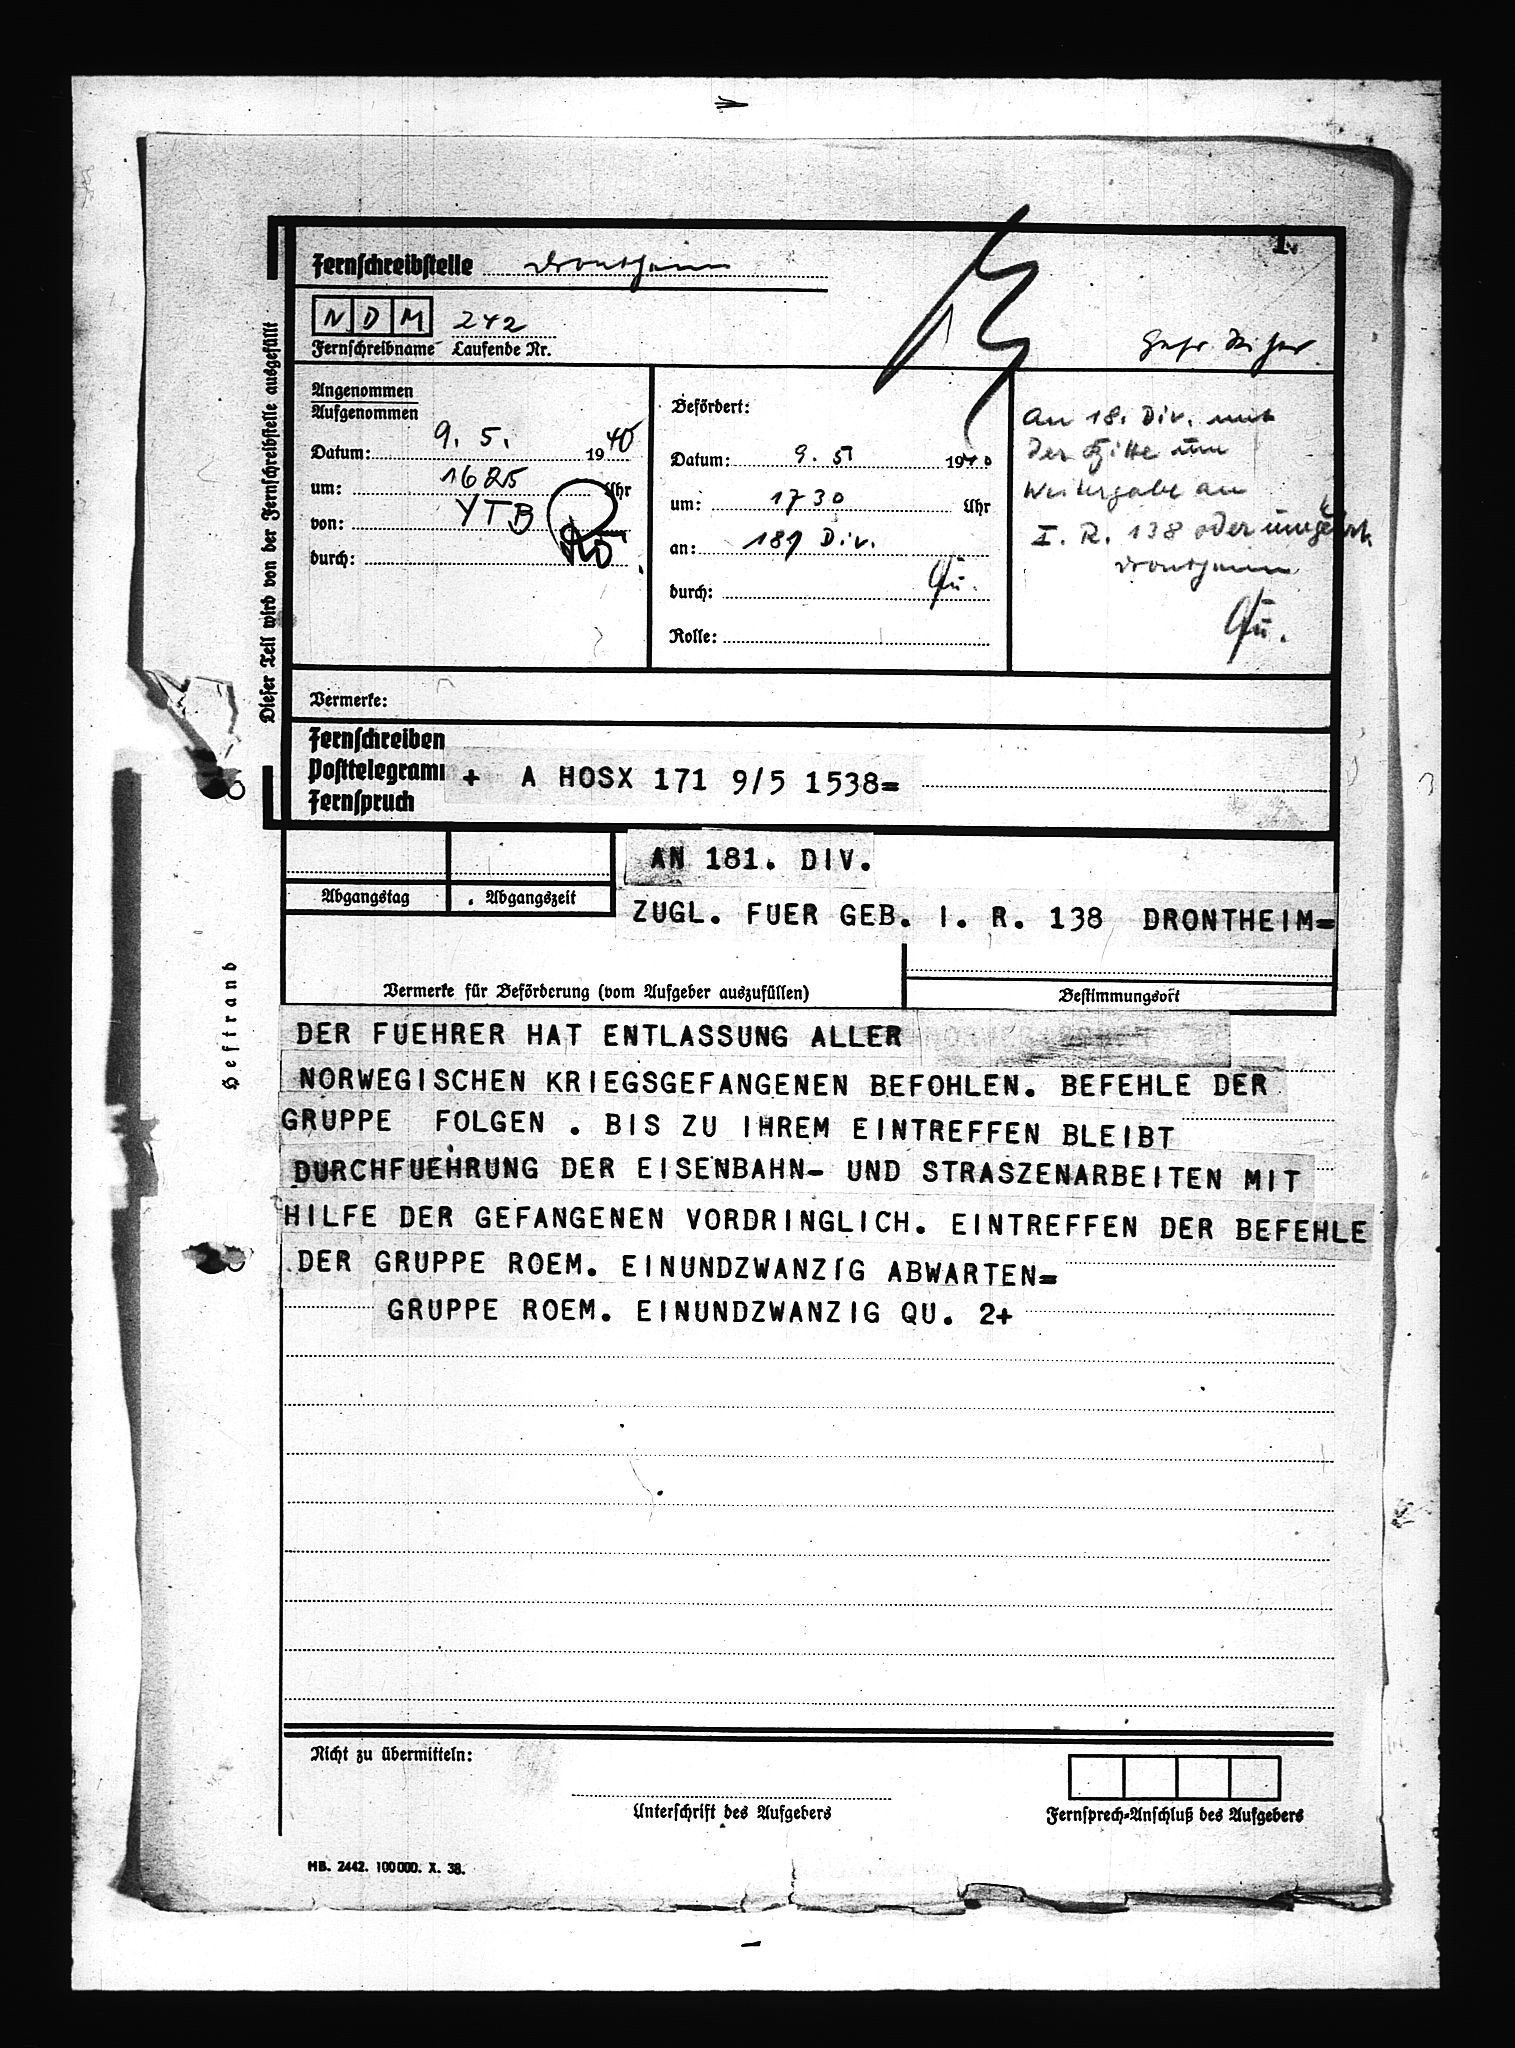 1.
Fernschreibstelle Drontheim
N D M 242
Fernschreibname Laufende Nr.
Dieser Teil wird von der Fernschreibstelle ausgefüllt
Angenommen
Aufgenommen
Datum: 9. 5. 1940
um: 1625 Uhr
von: YTB
durch: Rö
Befördert:
Datum: 9. 5 1940
um: 1730 Uhr
an: 181 Div.
durch: Qu.
Rolle:
An 18. Div. mit
der Bitte um
Weitergabe an
I. R. 138 oder umgekehrt
Drontheim
Qu.
Vermerke:
Fernschreiben
Posttelegramm
Fernspruch
+ A HOSX 171 9/5 1538=
AN 181. DIV.
Abgangstag Abgangszeit
ZUGL. FUER GEB. I. R. 138 DRONTHEIM=
Vermerke für Beförderung (vom Aufgeber auszufüllen)
Bestimmungsort
Heftrand
DER FUEHRER HAT ENTLASSUNG ALLER
NORWEGISCHEN KRIEGSGEFANGENEN BEFOHLEN. BEFEHLE DER
GRUPPE FOLGEN . BIS ZU IHREM EINTREFFEN BLEIBT
DURCHFUEHRUNG DER EISENBAHN- UND STRASZENARBEITEN MIT
HILFE DER GEFANGENEN VORDRINGLICH. EINTREFFEN DER BEFEHLE
DER GRUPPE ROEM. EINUNDZWANZIG ABWARTEN=
GRUPPE ROEM. EINUNDZWANZIG QU. 2+
Nicht zu übermitteln:
Unterschrift des Aufgebers
Fernsprech-Anschluß des Aufgebers
HB. 2442. 100000. X. 38.